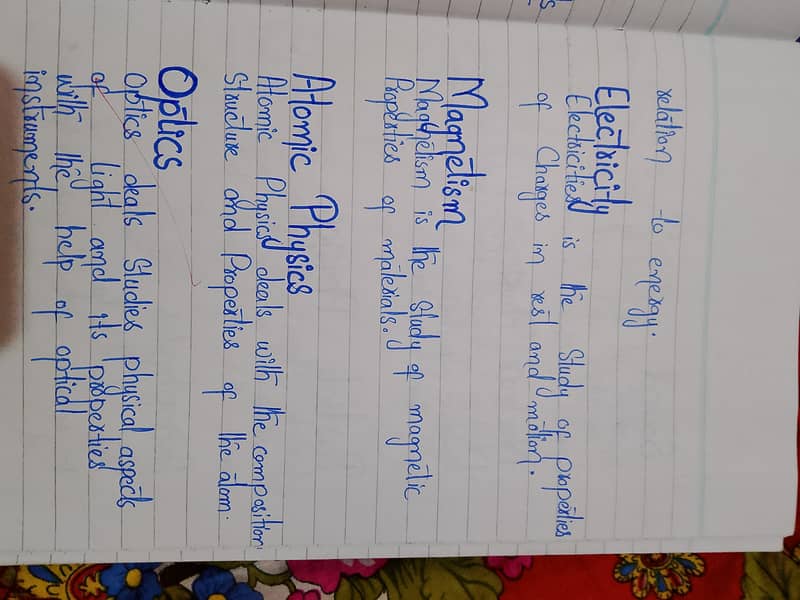 relation to energy.
Electricity
Electricities is the Study of properties
of Charges in rest and motion.
Magnetism
Magnetism is the Study of magnetic
Properties of materials.
Atomic Physics
Atomic Physics deals with the composition
Structure and Properties of the atom.
Optics
Optics deals Studies physical aspects
of light and its properties
with the help of optical
instruments.